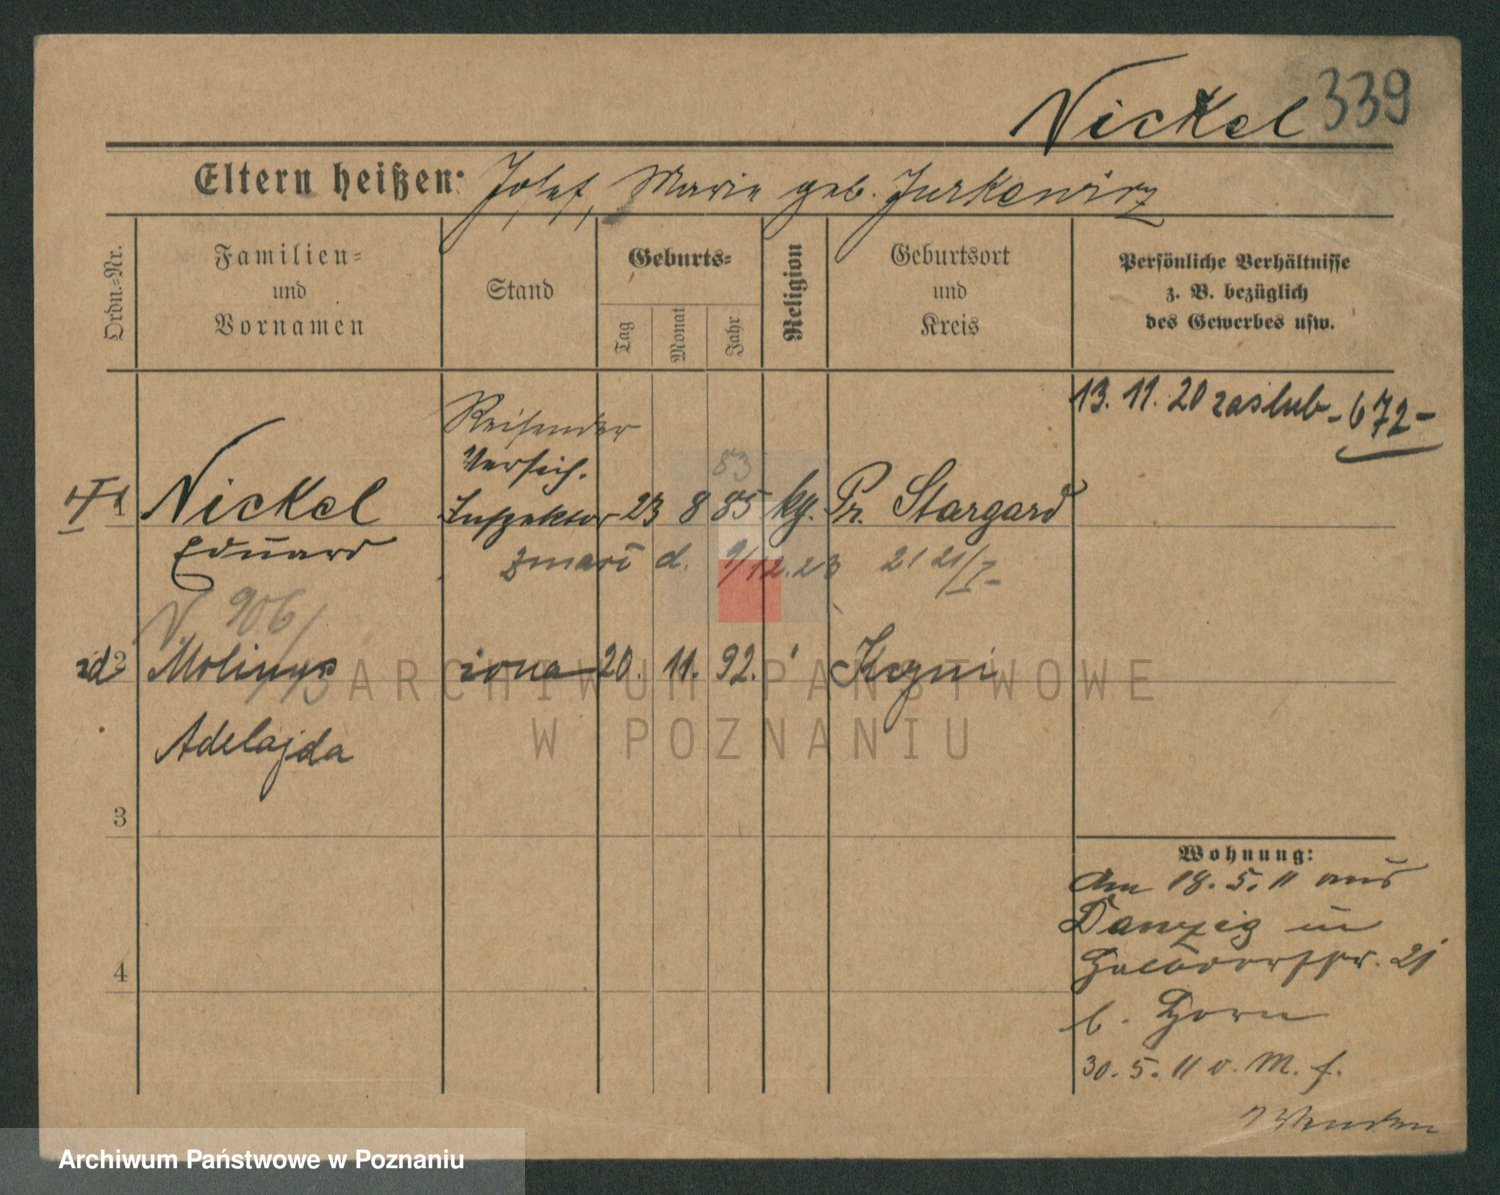 Nickel 339
Eltern heißen: Josef, Marie geb. Jurkewicz
Ordn.=Nr.
Familien=
und
Vornamen
Stand
Geburts=
Tag
Monat
Jahr
Religion
Geburtsort
und
Kreis
Persönliche Verhältnisse
z. B. bezüglich
des Gewerbes usw.
13. 11. 20 zaslub - 672 -
Reisender
Versich.
83
1 Nickel Inspektor 23 8 85 kg. Pr. Stargard
Eduard
zmarł d. 9/12.23 21 21/I
V. 906/
2 Molinys żona 20. 11. 92. Kcyni
Adelajda
3
4
Wohnung:
Am 18. 5. 11 aus
Danzig in
21
b. Horn
30. 5. 11 v. M. f.
ARCHIWUM PAŃSTWOWE
W POZNANIU
Archiwum Państwowe w Poznaniu